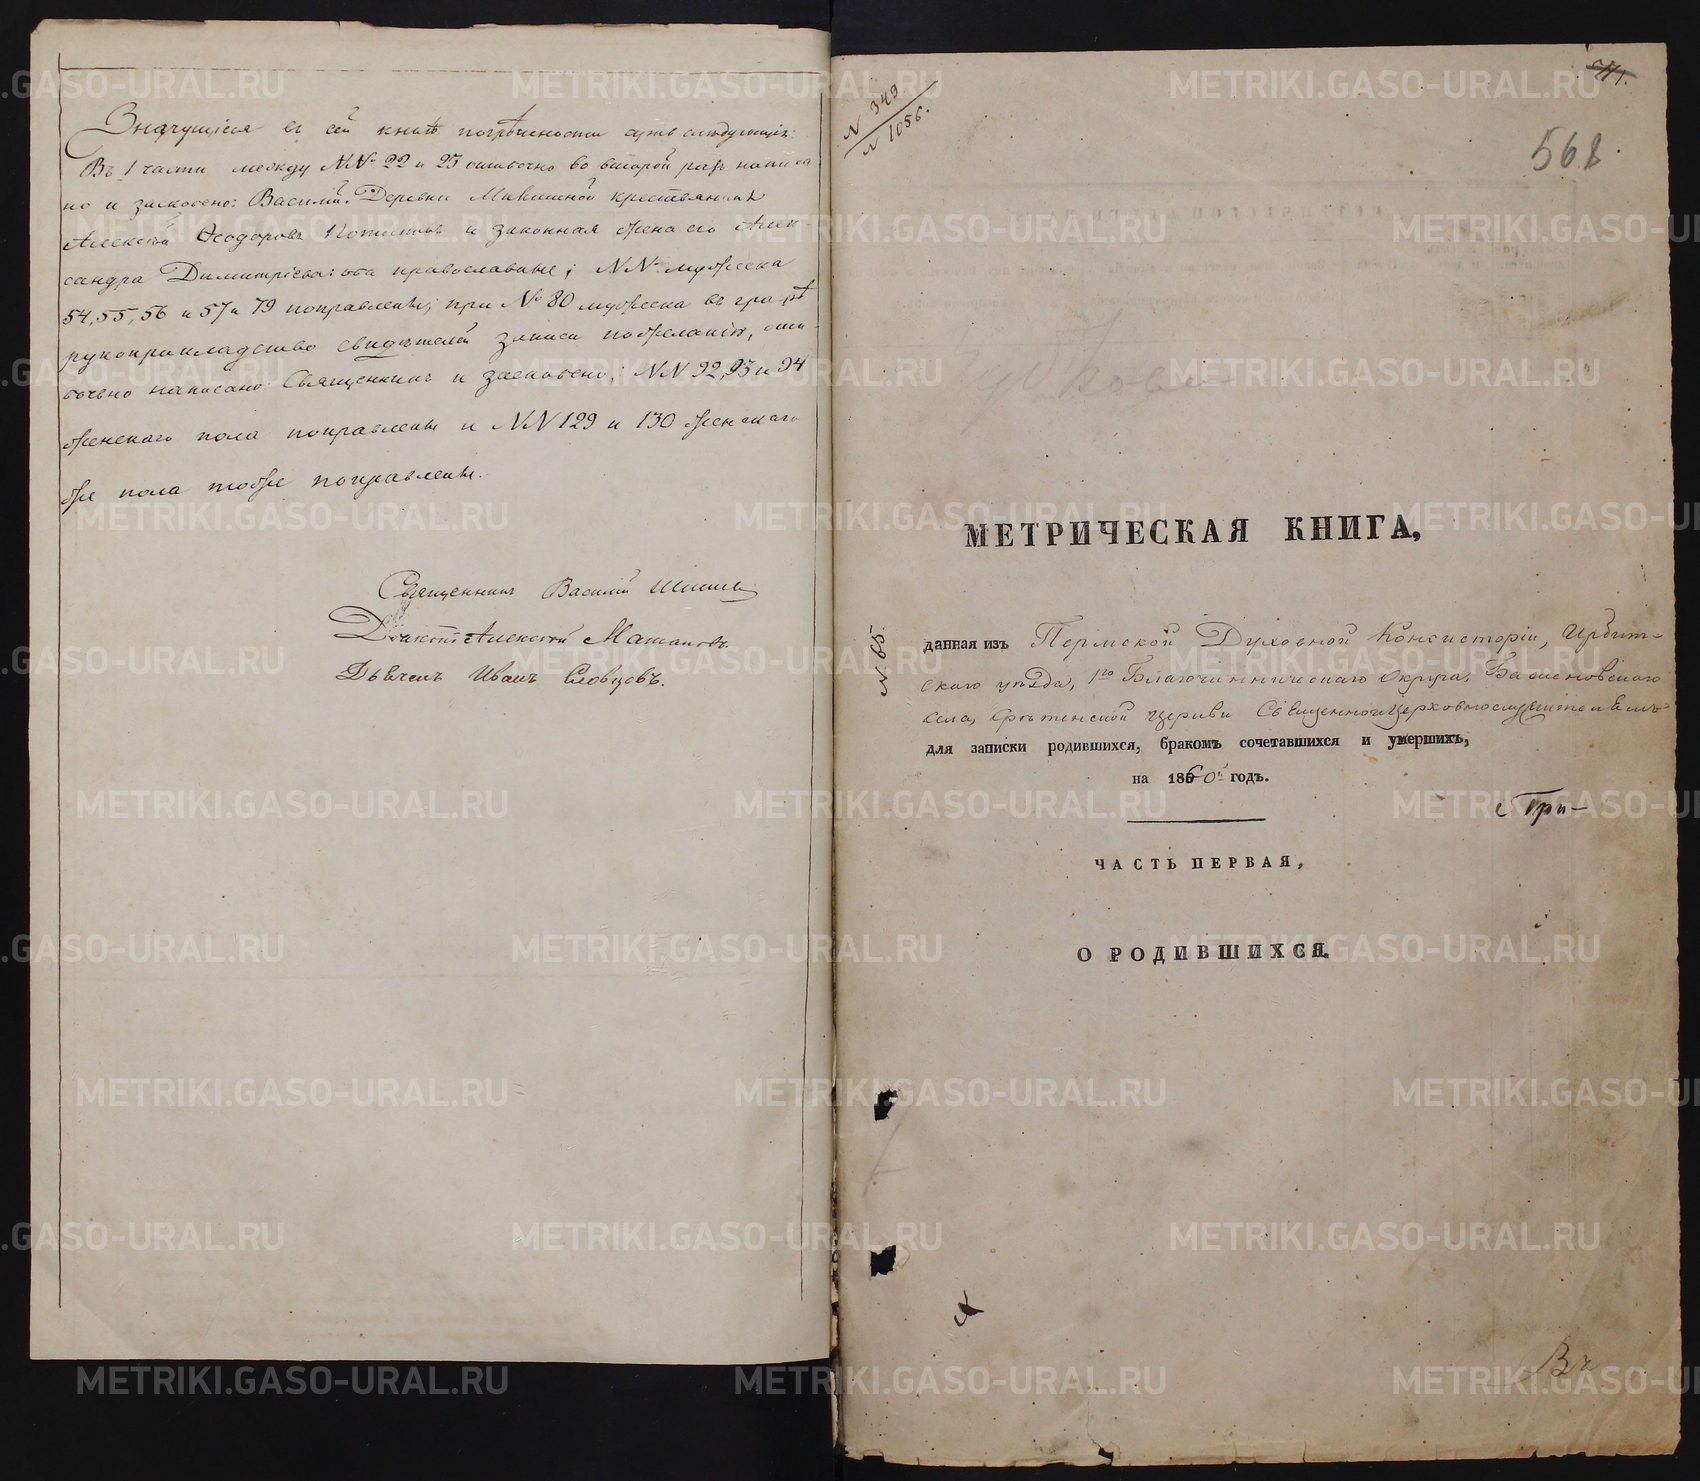 Значущіяся въ сей книгѣ погрѣшности суть слѣдующія:
Въ 1 части между №№ 22 и 23 ошибочно во второй разъ написа-
но и заскоблено: Василій. Деревни крестьянинъ
Алексѣй Ѳеодоровъ и законная жена его Алек-
сандра Димитріева: оба православные; №№ мужеска
54, 55, 56 и 57 и 79 поправлены; при № 80 мужеска въ графѣ
рукоприкладство свидѣтелей записи по желанію, оши-
бочно написано Священникъ и заскоблено; №№ 92, 93 и 94
женскаго пола поправлены и №№ 129 и 130 женскаго
же пола тоже поправлены.
Священникъ Василій
Діаконъ Алексѣй
Дьячекъ Иванъ Словцовъ.
N 349
N 1056.
568.
N 65.
МЕТРИЧЕСКАЯ КНИГА,
данная изъ Пермской Духовной Консисторіи, Ирбит-
скаго уѣзда, 1го Благочинническаго Округа,
села, Срѣтенской церкви Священноцерковнослужителямъ
для записки родившихся, бракомъ сочетавшихся и умершихъ,
на 1860й годъ.
Три-
ЧАСТЬ ПЕРВАЯ,
О РОДИВШИХСЯ.
METRIKI.GASO-URAL.RU